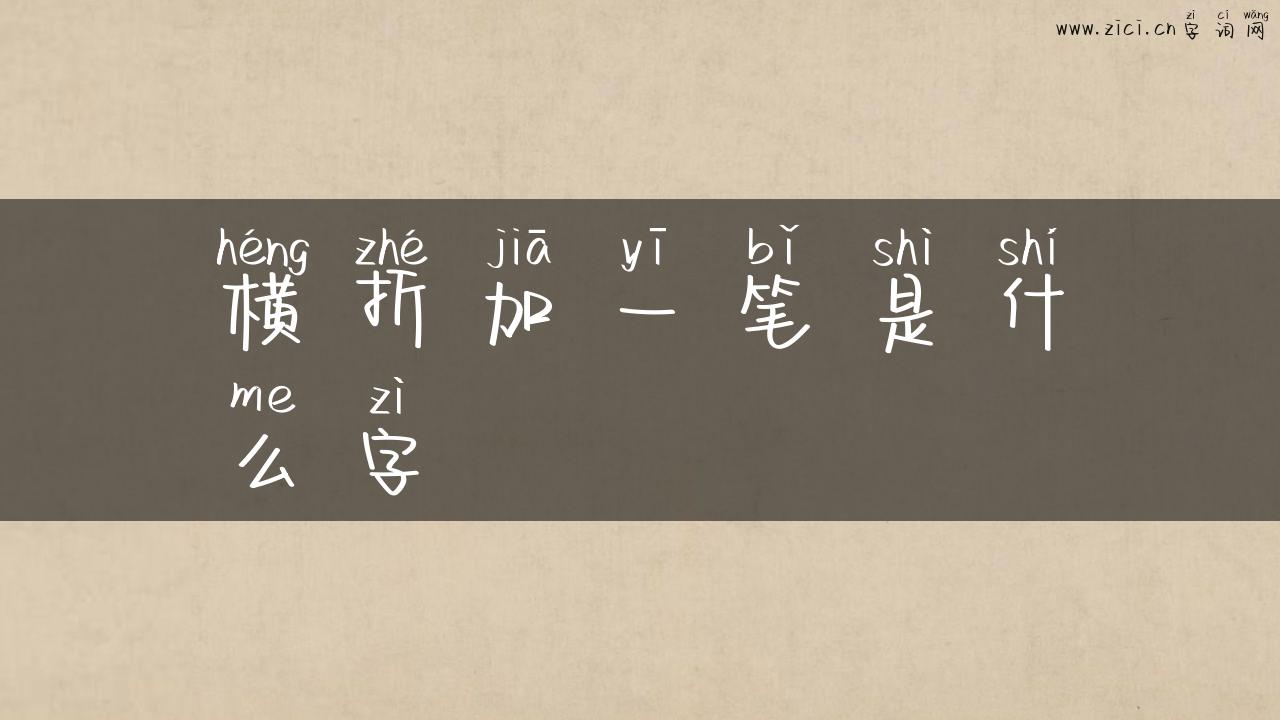 zì cí wǎng
www.zici.cn 字词网
héng zhé jiā yī bǐ shì shí
横折加一笔是什
me zì
么字